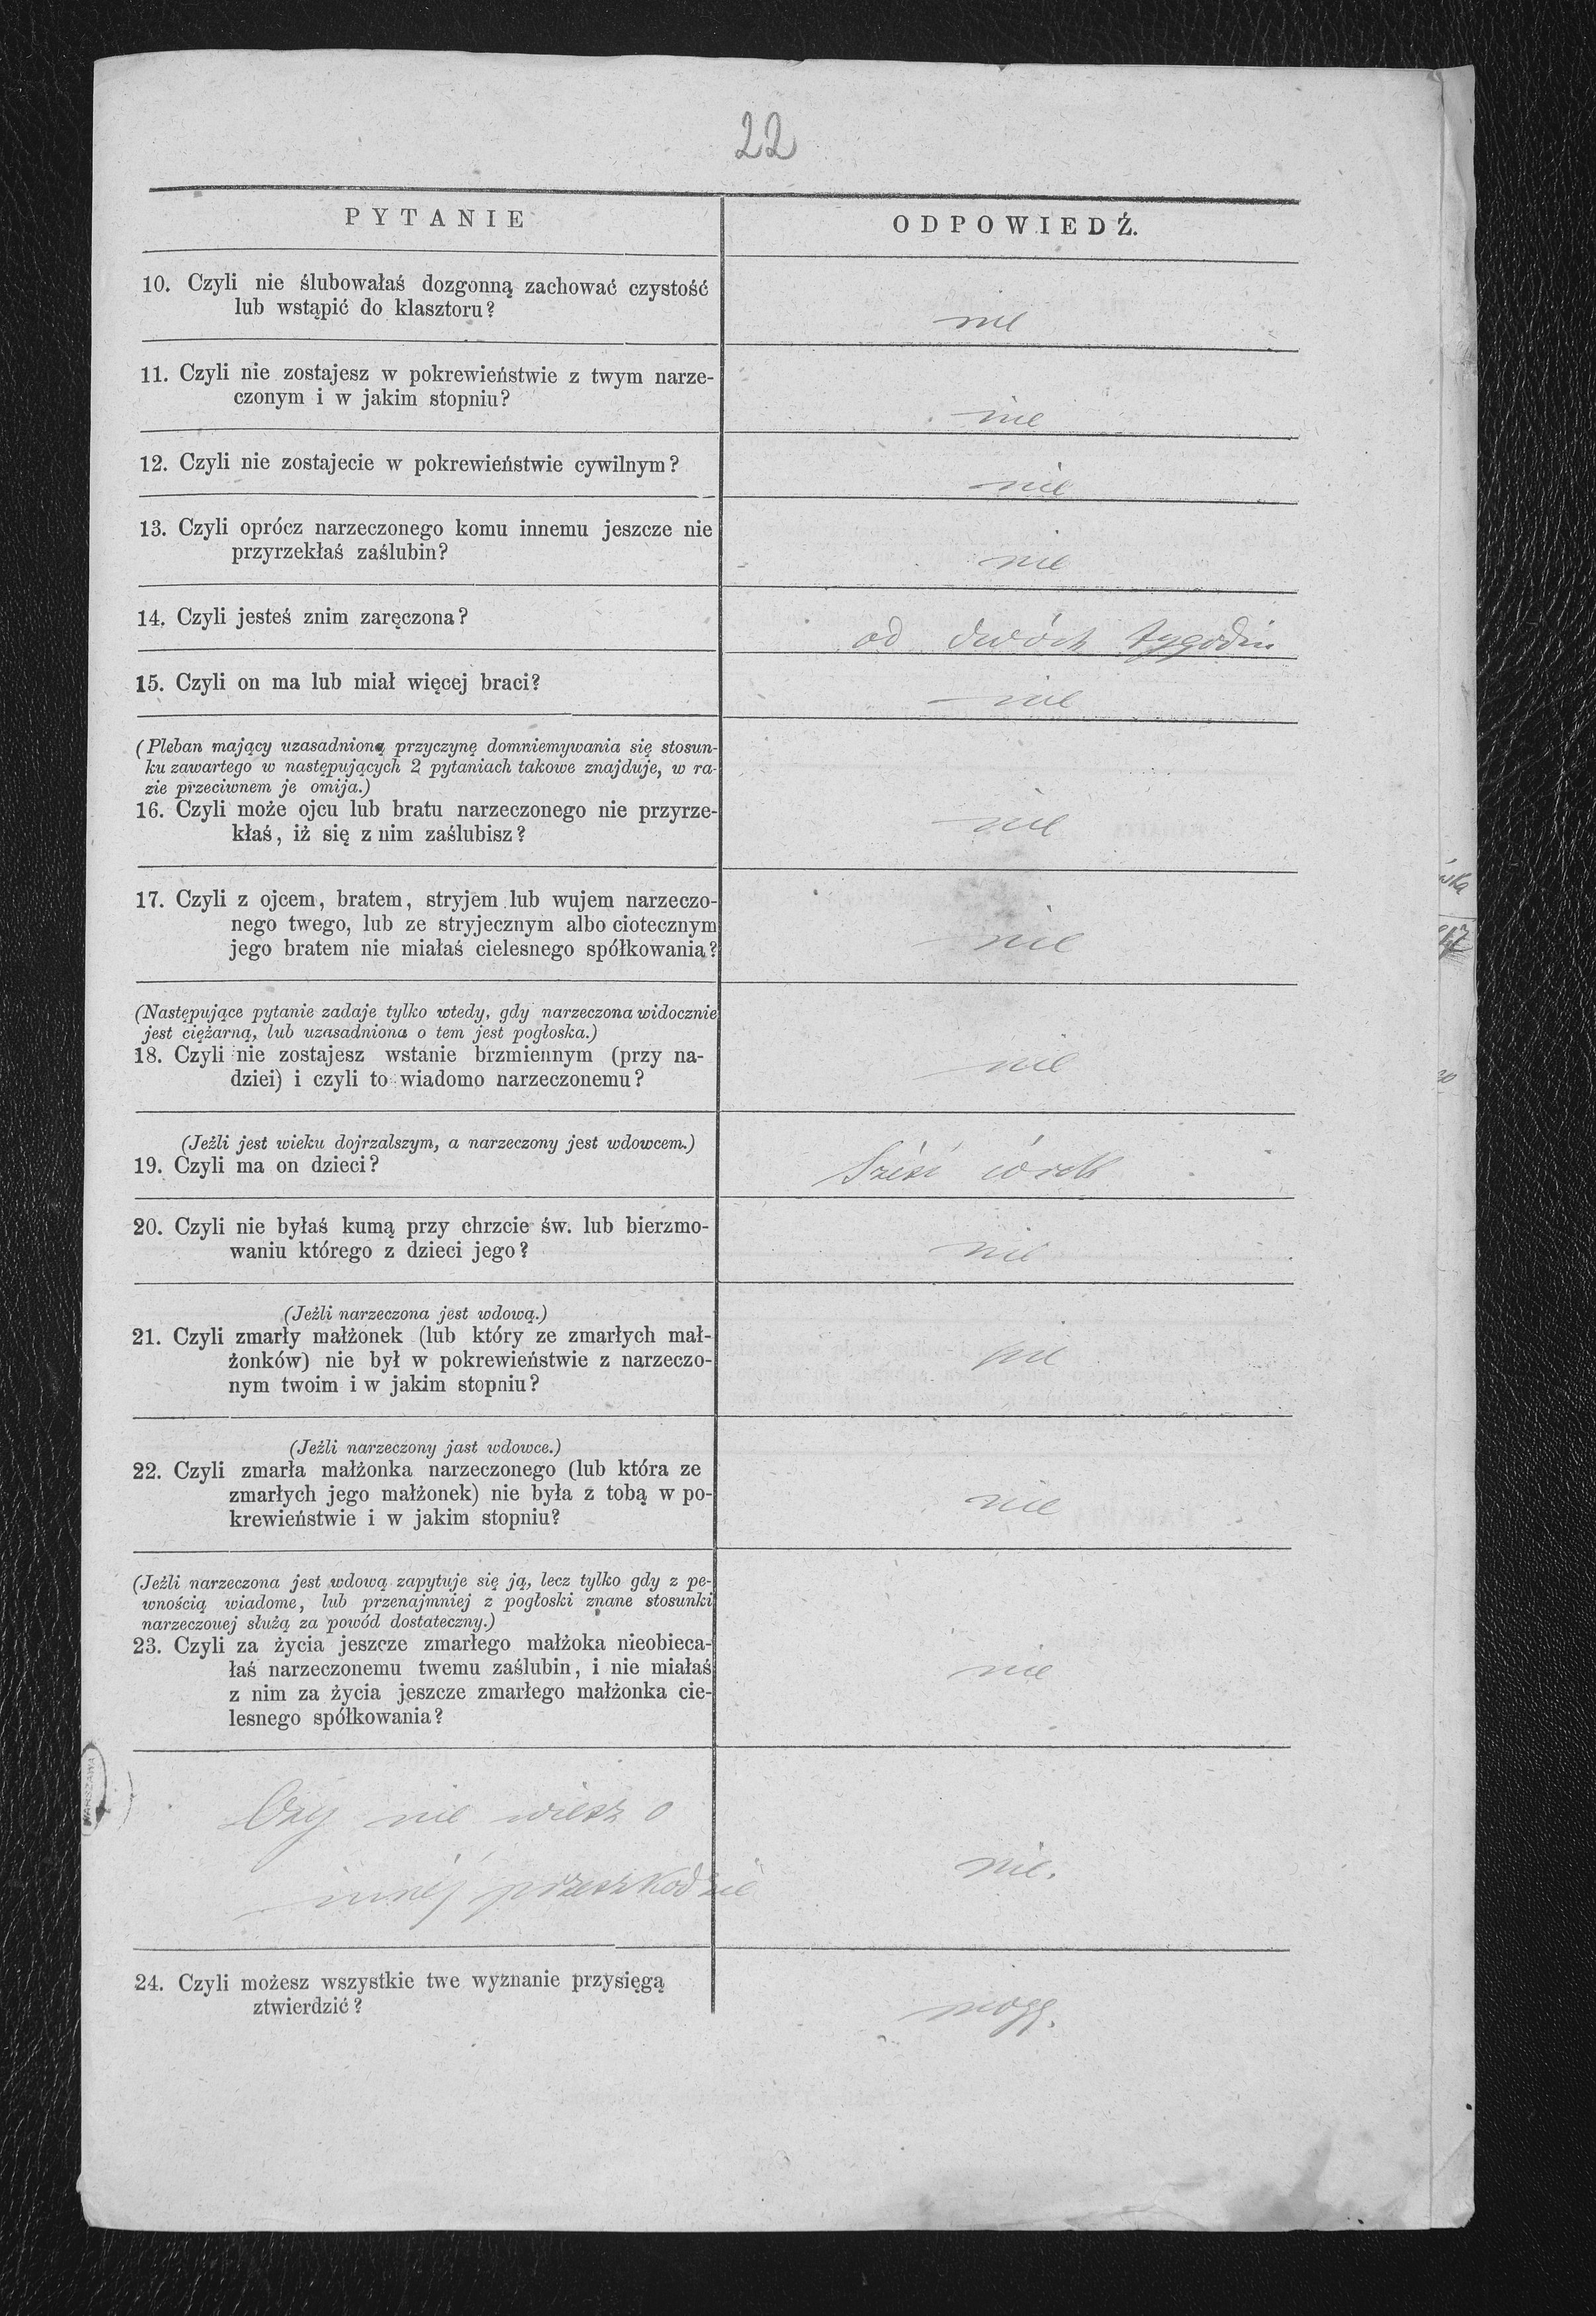 22
PYTANIE
ODPOWIEDŹ.
10. Czyli nie ślubowałaś dozgonną zachować czystość
lub wstąpić do klasztoru?
nie
11. Czyli nie zostajesz w pokrewieństwie z twym narze-
czonym i w jakim stopniu?
nie
12. Czyli nie zostajecie w pokrewieństwie cywilnym?
nie
13. Czyli oprócz narzeczonego komu innemu jeszcze nie
przyrzekłaś zaślubin?
nie
14. Czyli jesteś znim zaręczona?
od dwóch tygodni
15. Czyli on ma lub miał więcej braci?
nie
(Pleban mający uzasadnioną przyczynę domniemywania się stosun-
ku zawartego w następujących 2 pytaniach takowe znajduje, w ra-
zie przeciwnem je omija.)
16. Czyli może ojcu lub bratu narzeczonego nie przyrze-
kłaś, iż się z nim zaślubisz?
nie
17. Czyli z ojcem, bratem, stryjem lub wujem narzeczo-
nego twego, lub ze stryjecznym albo ciotecznym
jego bratem nie miałaś cielesnego spółkowania?
nie
(Następujące pytanie zadaje tylko wtedy, gdy narzeczona widocznie
jest ciężarną, lub uzasadniona o tem jest pogłoska.)
18. Czyli nie zostajesz wstanie brzmiennym (przy na-
dziei) i czyli to wiadomo narzeczonemu?
nie
(Jeźli jest wieku dojrzalszym, a narzeczony jest wdowcem.)
19. Czyli ma on dzieci?
Sześć córek
20. Czyli nie byłaś kumą przy chrzcie św. lub bierzmo-
waniu którego z dzieci jego?
nie
(Jeźli narzeczona jest wdową.)
21. Czyli zmarły małżonek (lub który ze zmarłych mał-
żonków) nie był w pokrewieństwie z narzeczo-
nym twoim i w jakim stopniu?
nie
(Jeźli narzeczony jast wdowce.)
22. Czyli zmarła małżonka narzeczonego (lub która ze
zmarłych jego małżonek) nie była z tobą w po-
krewieństwie i w jakim stopniu?
nie
(Jeźli narzeczona jest wdową zapytuje się ją, lecz tylko gdy z pe-
wnością wiadome, lub przenajmniej z pogłoski znane stosunki
narzeczonej służą za powód dostateczny.)
23. Czyli za życia jeszcze zmarłego małżoka nieobieca-
łaś narzeczonemu twemu zaślubin, i nie miałaś
z nim za życia jeszcze zmarłego małżonka cie-
lesnego spółkowania?
nie
Czy nie wiesz o
innéj przeszkodzie
nie.
24. Czyli możesz wszystkie twe wyznanie przysięgą
ztwierdzić?
mogę.
WARSZAWA